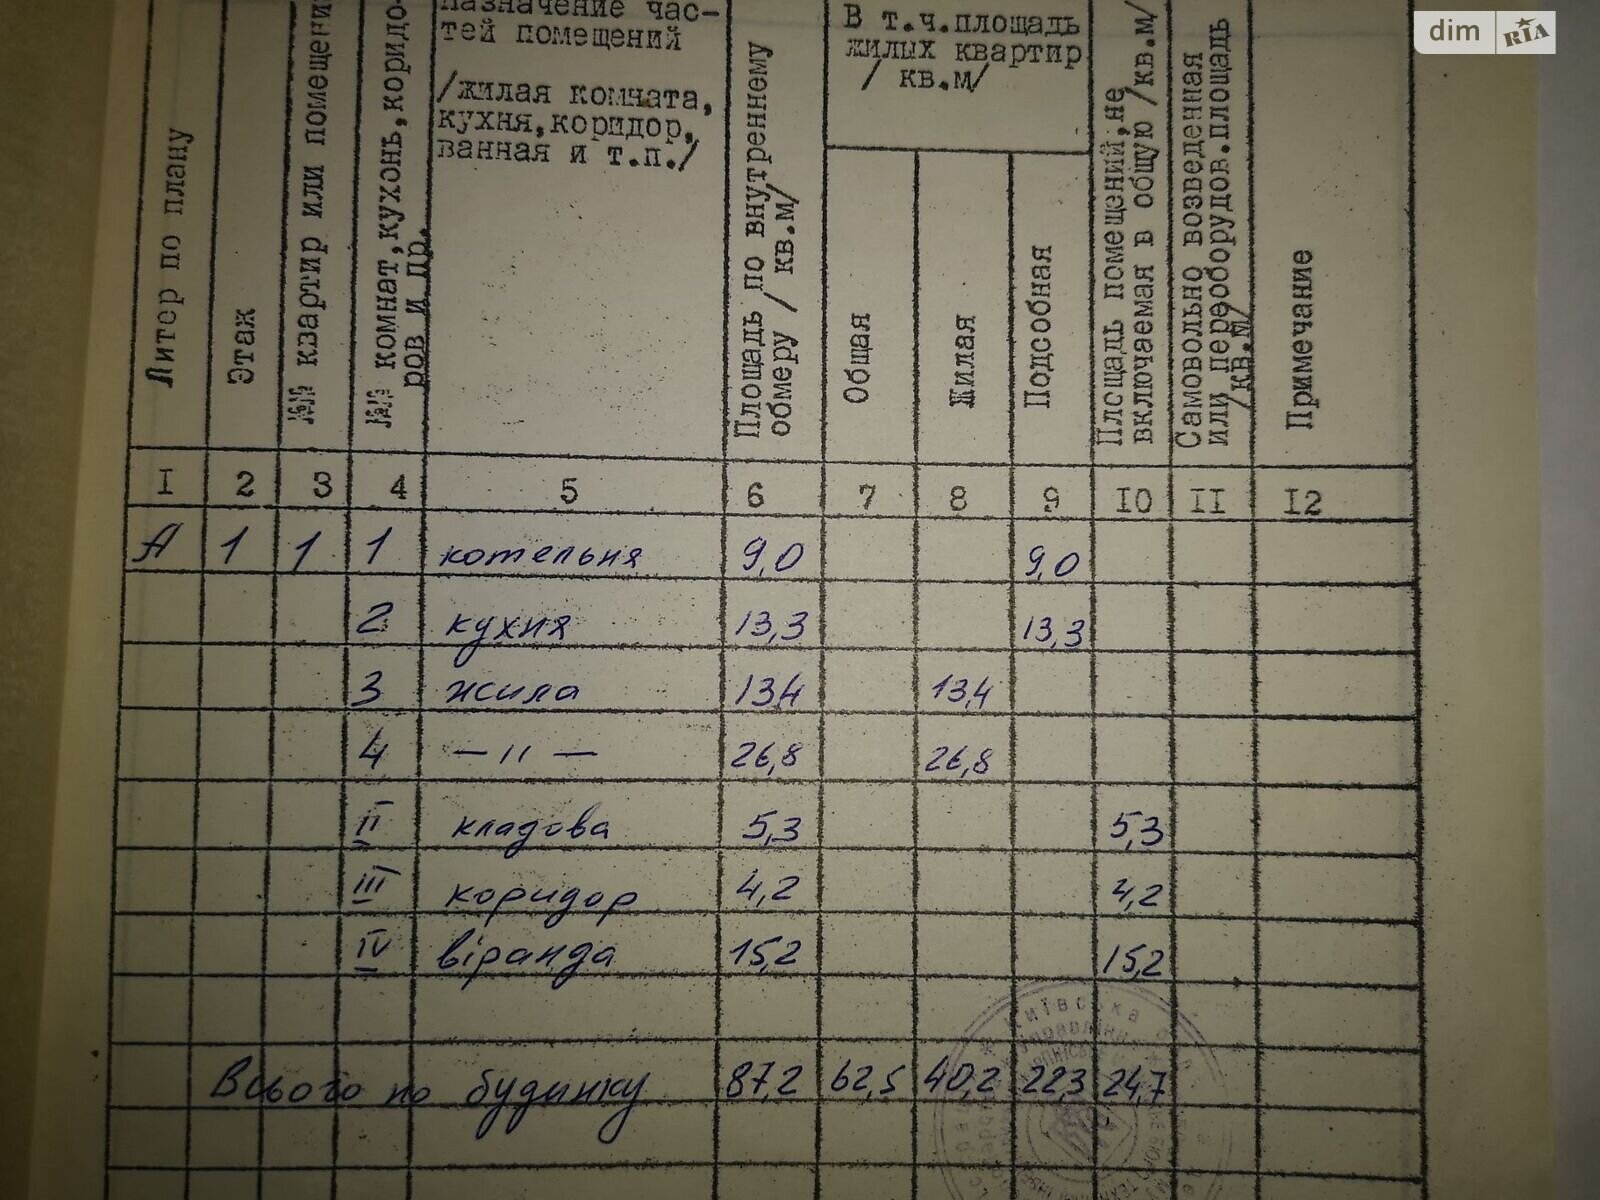 dim RIA
Литер по плану
Этаж
№№ квартир или помещени
№№ комнат,кухонь,коридо-
ров и пр.
назначение час-
тей помещений
/жилая комната,
кухня,коридор,
ванная и т.п./
Площадь по внутреннему
обмеру / кв.м/
В т.ч.площадь
жилых квартир
/ кв.м/
Общая
Жилая
Подсобная
Площадь помещений,не
включаемая в общую /кв.м/
Самовольно возведенная
или переоборудов.площадь
/кв.м/
Примечание
I 2 3 4 5 6 7 8 9 IO II I2
А 1 1 1 котельня 9,0 9,0
2 кухня 13,3 13,3
3 жила 13,4 13,4
4 — 11 — 26,8 26,8
II кладова 5,3 5,3
III коридор 4,2 4,2
IV віранда 15,2 15,2
Всього по будинку 87,2 62,5 40,2 22,3 24,7
Київська